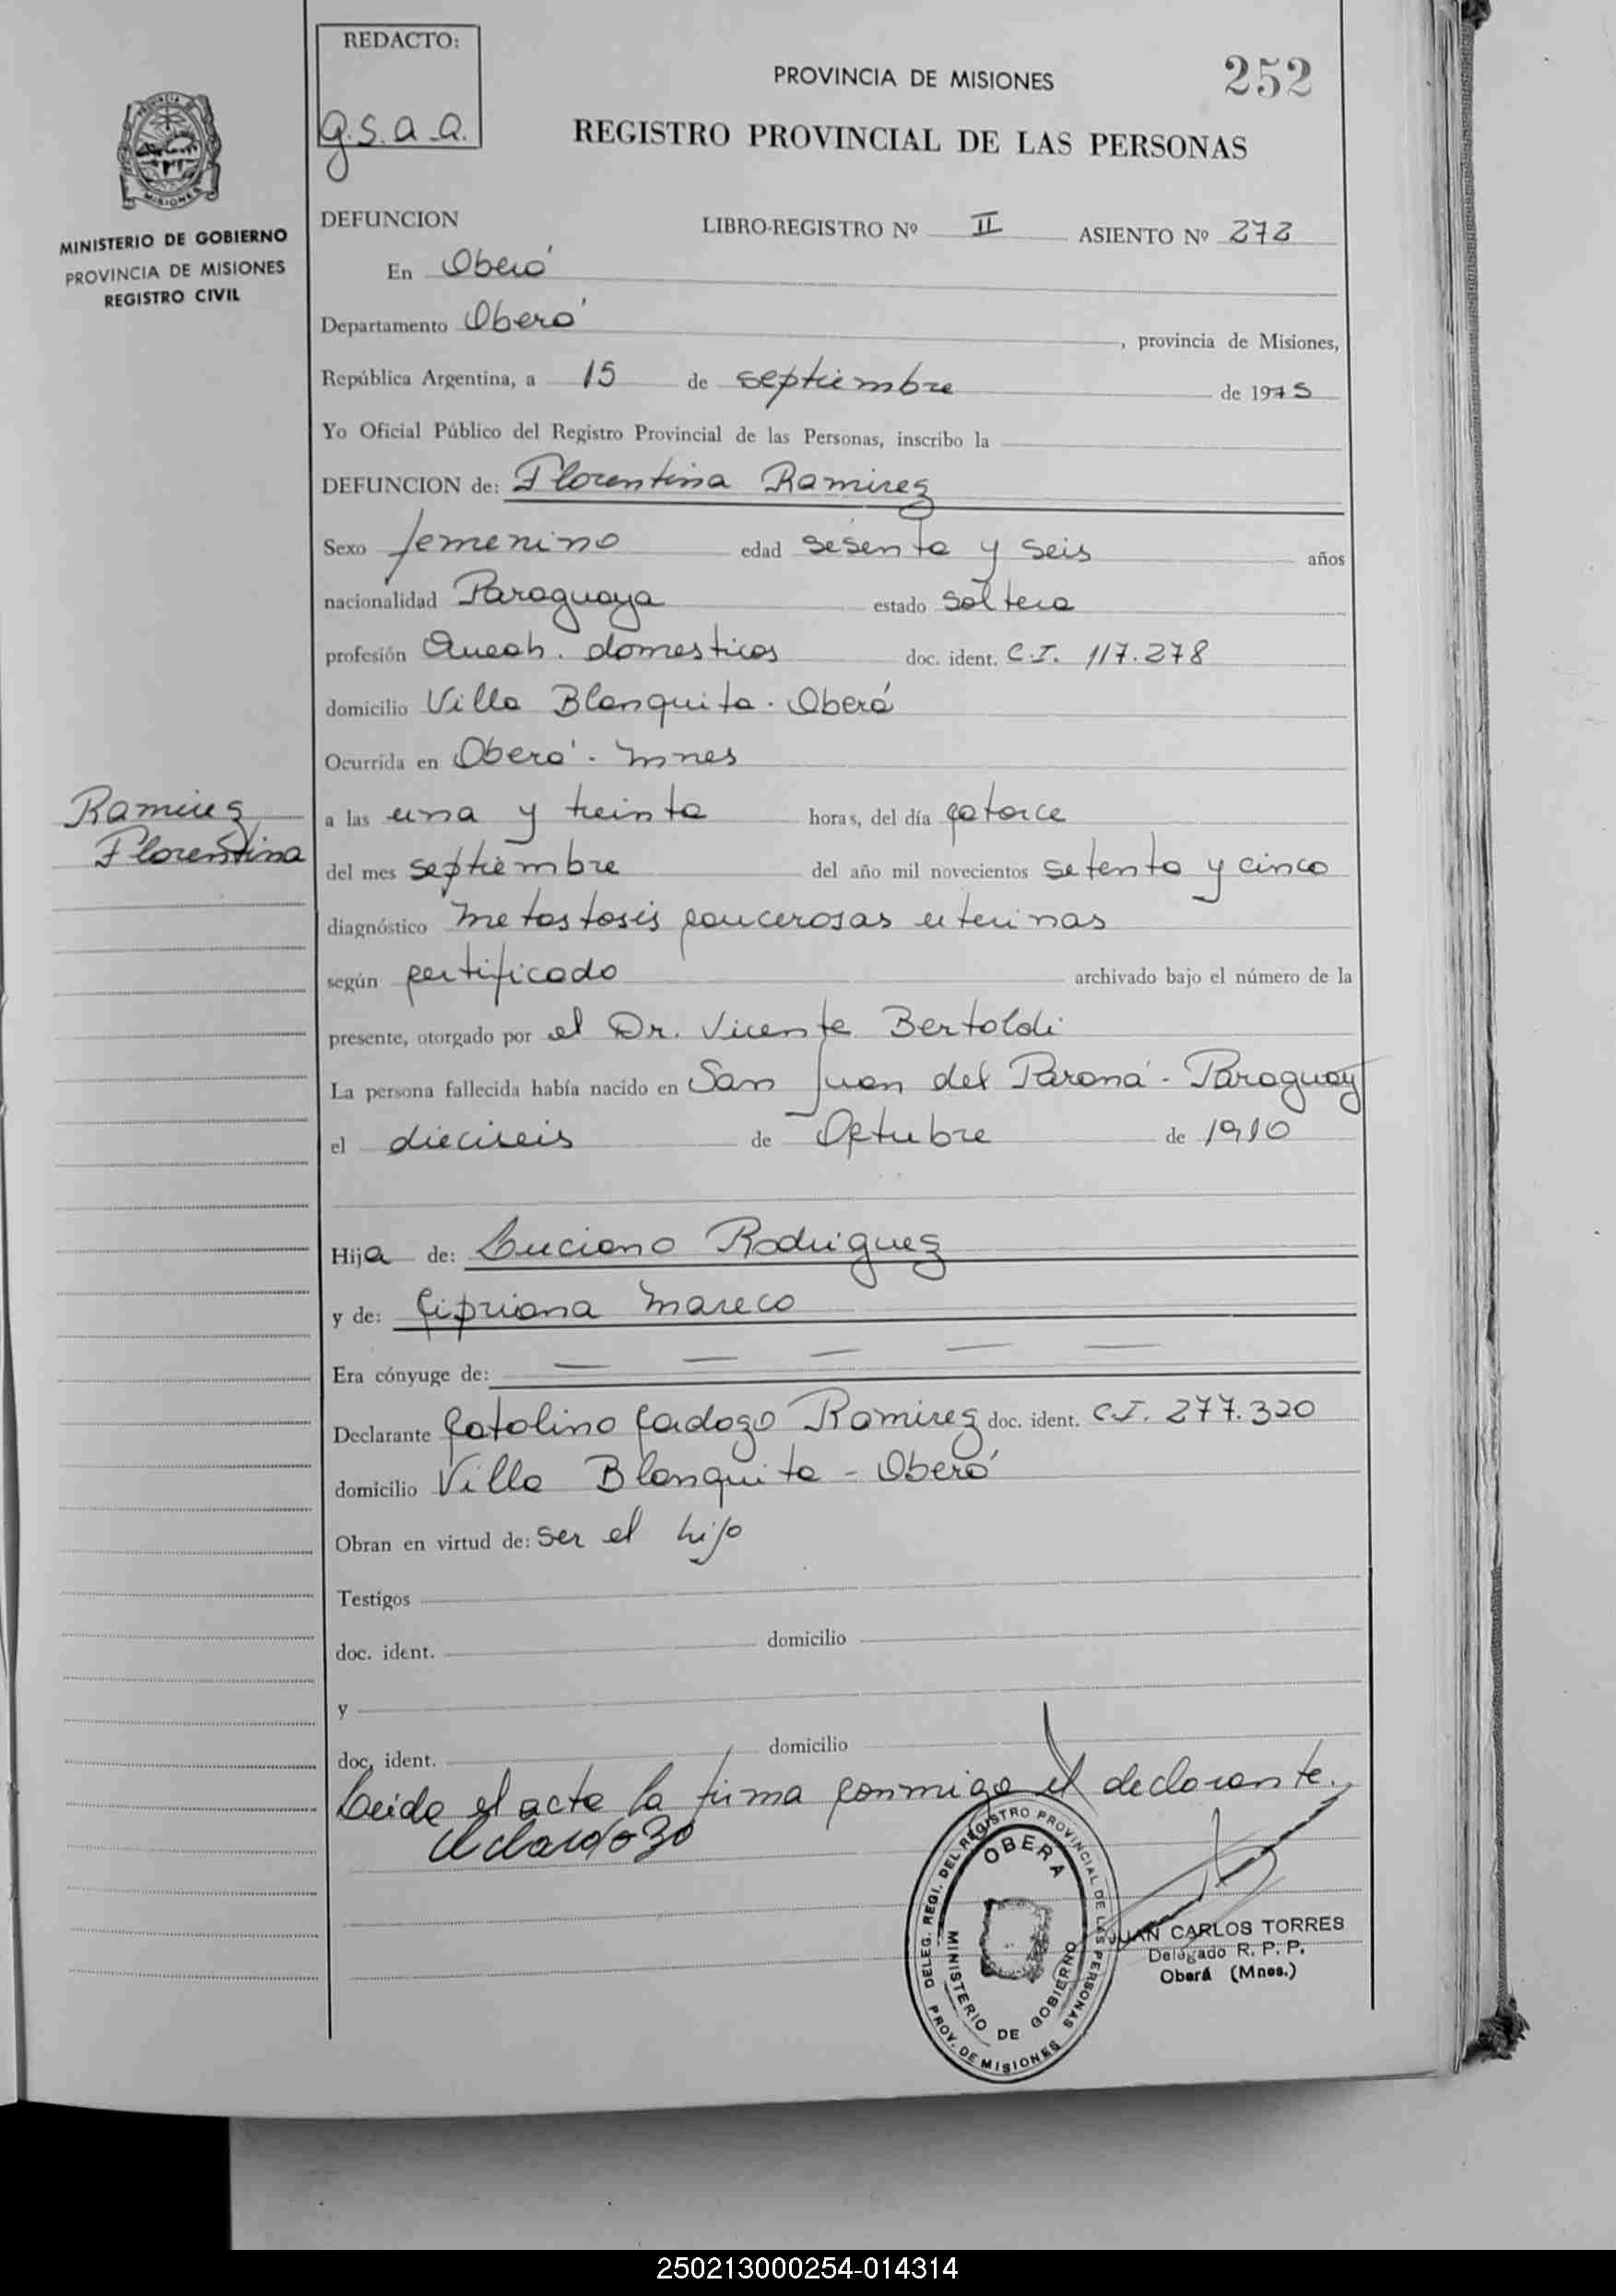 REDACTO:
g.s.a.a.
PROVINCIA DE MISIONES
252
REGISTRO PROVINCIAL DE LAS PERSONAS
MISIONES
MINISTERIO DE GOBIERNO
PROVINCIA DE MISIONES
REGISTRO CIVIL
DEFUNCION LIBRO-REGISTRO Nº II ASIENTO Nº 272
En Oberá
Departamento Oberá , provincia de Misiones,
República Argentina, a 15 de septiembre de 1975
Yo Oficial Público del Registro Provincial de las Personas, inscribo la
DEFUNCION de: Florentina Ramirez
Sexo femenino edad sesenta y seis años
nacionalidad Paraguaya estado soltera
profesión Queah. domesticos doc. ident. C.I. 117.278
domicilio Villa Blanquita - Oberá
Ocurrida en Oberá - Mnes
Ramirez
Florentina
a las una y treinta horas, del día catorce
del mes septiembre del año mil novecientos setenta y cinco
diagnóstico Metastosis cancerosas uterinas
según certificado archivado bajo el número de la
presente, otorgado por el Dr. Vicente Bertoldi
La persona fallecida había nacido en San Juan del Paraná - Paraguay
el dieciseis de Octubre de 1910
Hija de: Luciano Rodriguez
y de: Cipriana Mareco
Era cónyuge de: — — — — —
Declarante Catolino Cardozo Ramirez doc. ident. C.I. 277.320
domicilio Villa Blanquita - Oberá
Obran en virtud de: ser el hijo
Testigos
doc. ident. domicilio
y
doc. ident. domicilio
Leida el acta la firma conmigo el declarante.
Cardozo
DELEG. REGI. DEL REGISTRO PROVINCIAL DE LAS PERSONAS
PROV. DE MISIONES
OBERA
MINISTERIO DE GOBIERNO
JUAN CARLOS TORRES
Delegado R. P. P.
Oberá (Mnes.)
250213000254-014314